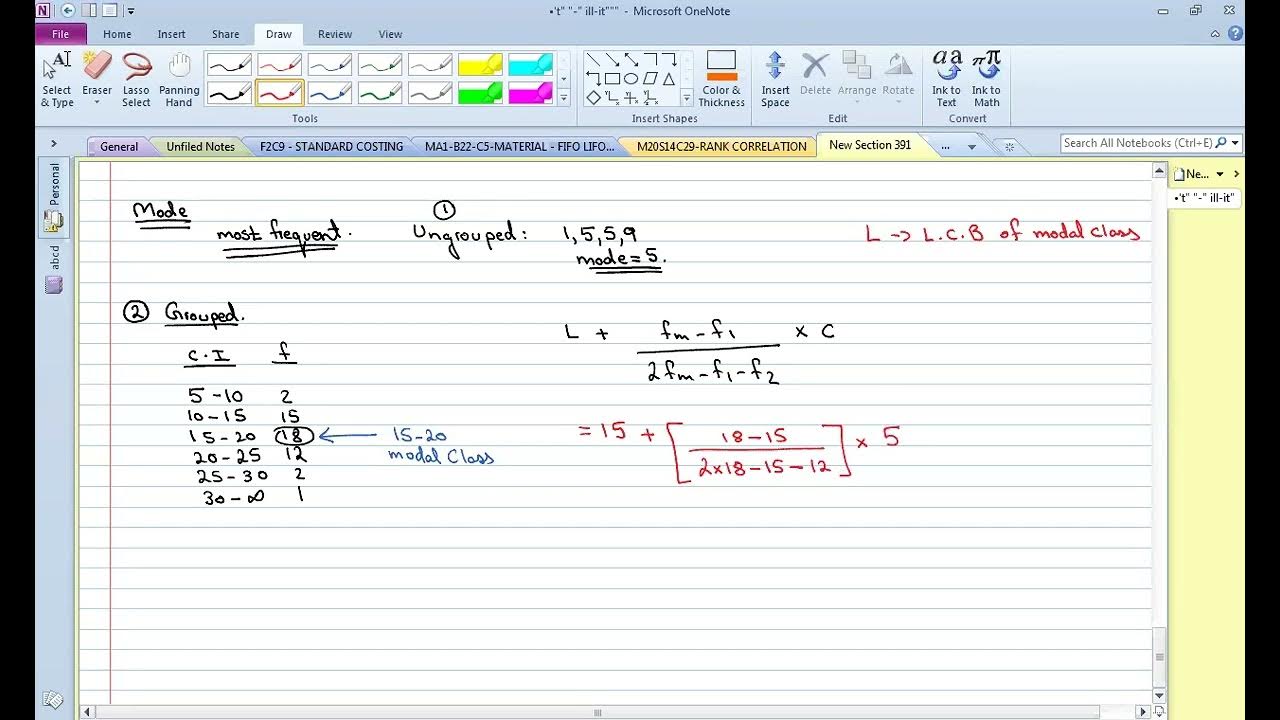 •'t" "-" ill-it""" - Microsoft OneNote
File Home Insert Share Draw Review View
Select & Type
Eraser
Lasso Select
Panning Hand
Color & Thickness
Insert Space
Delete
Arrange
Rotate
Ink to Text
Ink to Math
Tools
Insert Shapes
Edit
Convert
General
Unfiled Notes
F2C9 - STANDARD COSTING
MA1-B22-C5-MATERIAL - FIFO LIFO...
M20S14C29-RANK CORRELATION
New Section 391
...
Search All Notebooks (Ctrl+E)
Personal
abcd
Ne...
•'t" "-" ill-it"
Mode
most frequent.
①
Ungrouped: 1, 5, 5, 9
mode = 5.
L -> L.C.B of modal class
② Grouped.
C.I f
5-10 2
10-15 15
15-20 18
20-25 12
25-30 2
30-∞ 1
15-20
modal Class
L + (fm - f1) / (2fm - f1 - f2) x C
= 15 + [(18-15) / (2x18-15-12)] x 5